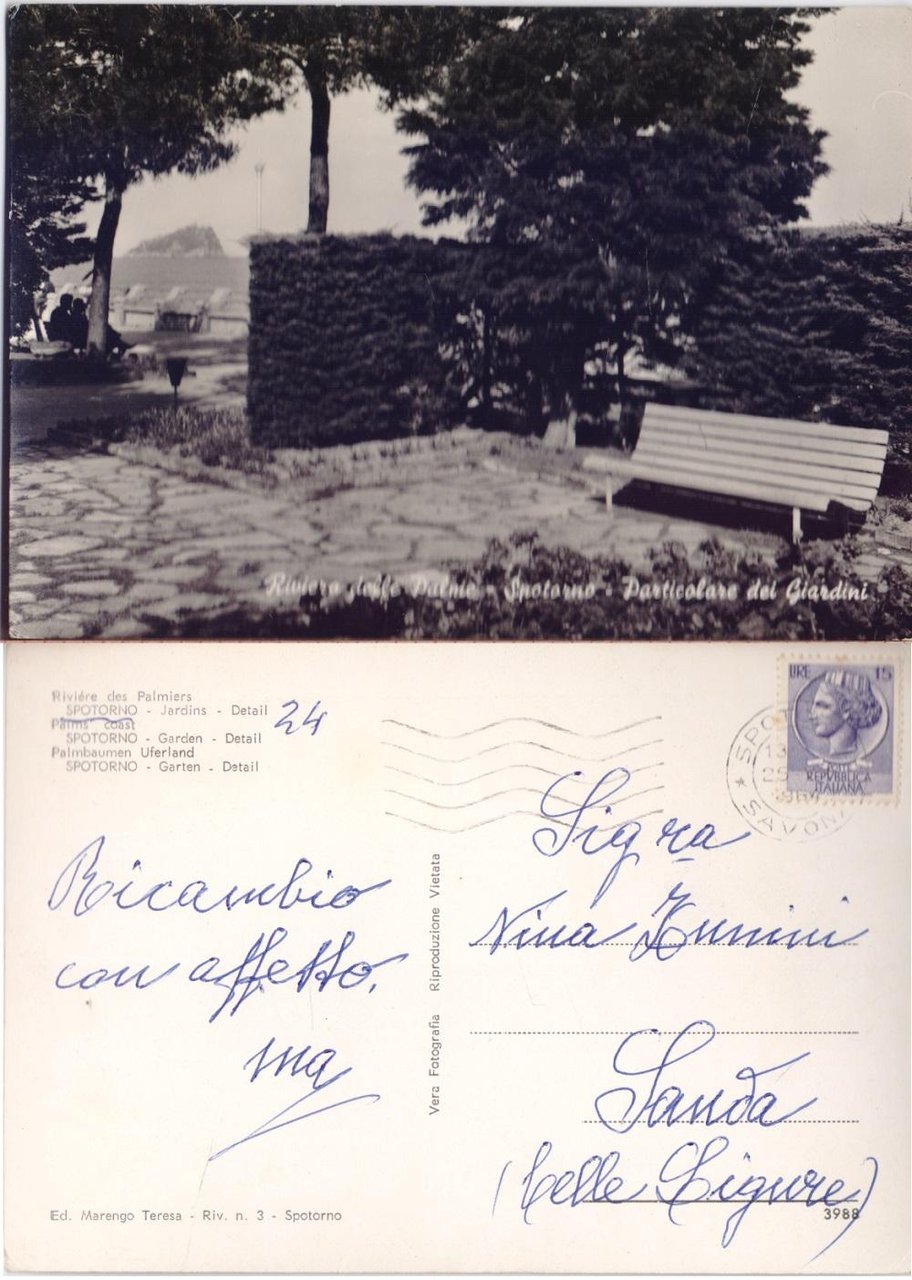 Riviera delle Palme - Spotorno - Particolare dei Giardini
Riviére des Palmiers
SPOTORNO - Jardins - Detail
Palms' coast
SPOTORNO - Garden - Detail
Palmbaumen Uferland
SPOTORNO - Garten - Detail
24
Ricambio
con affetto.
Ed. Marengo Teresa - Riv. n. 3 - Spotorno
Vera Fotografia Riproduzione Vietata
LIRE 15
REPVBBLICA
ITALIANA
SAVONA
Sig.ra
Nina Zunini
Sanda
(Celle Ligure)
3988